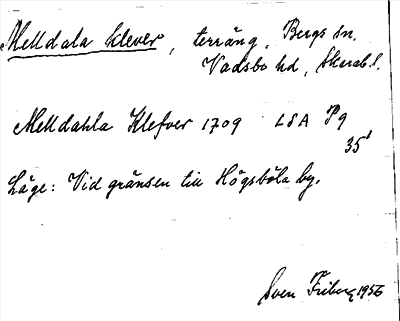 Melldala klever, terräng, Bergs sn.
Vadsbo hd, Skarab. l.
Melldahla Klefver 1709 LSA P9
35¹
Läge: Vid gränsen till Högsböla by.
Sven Friberg 1956